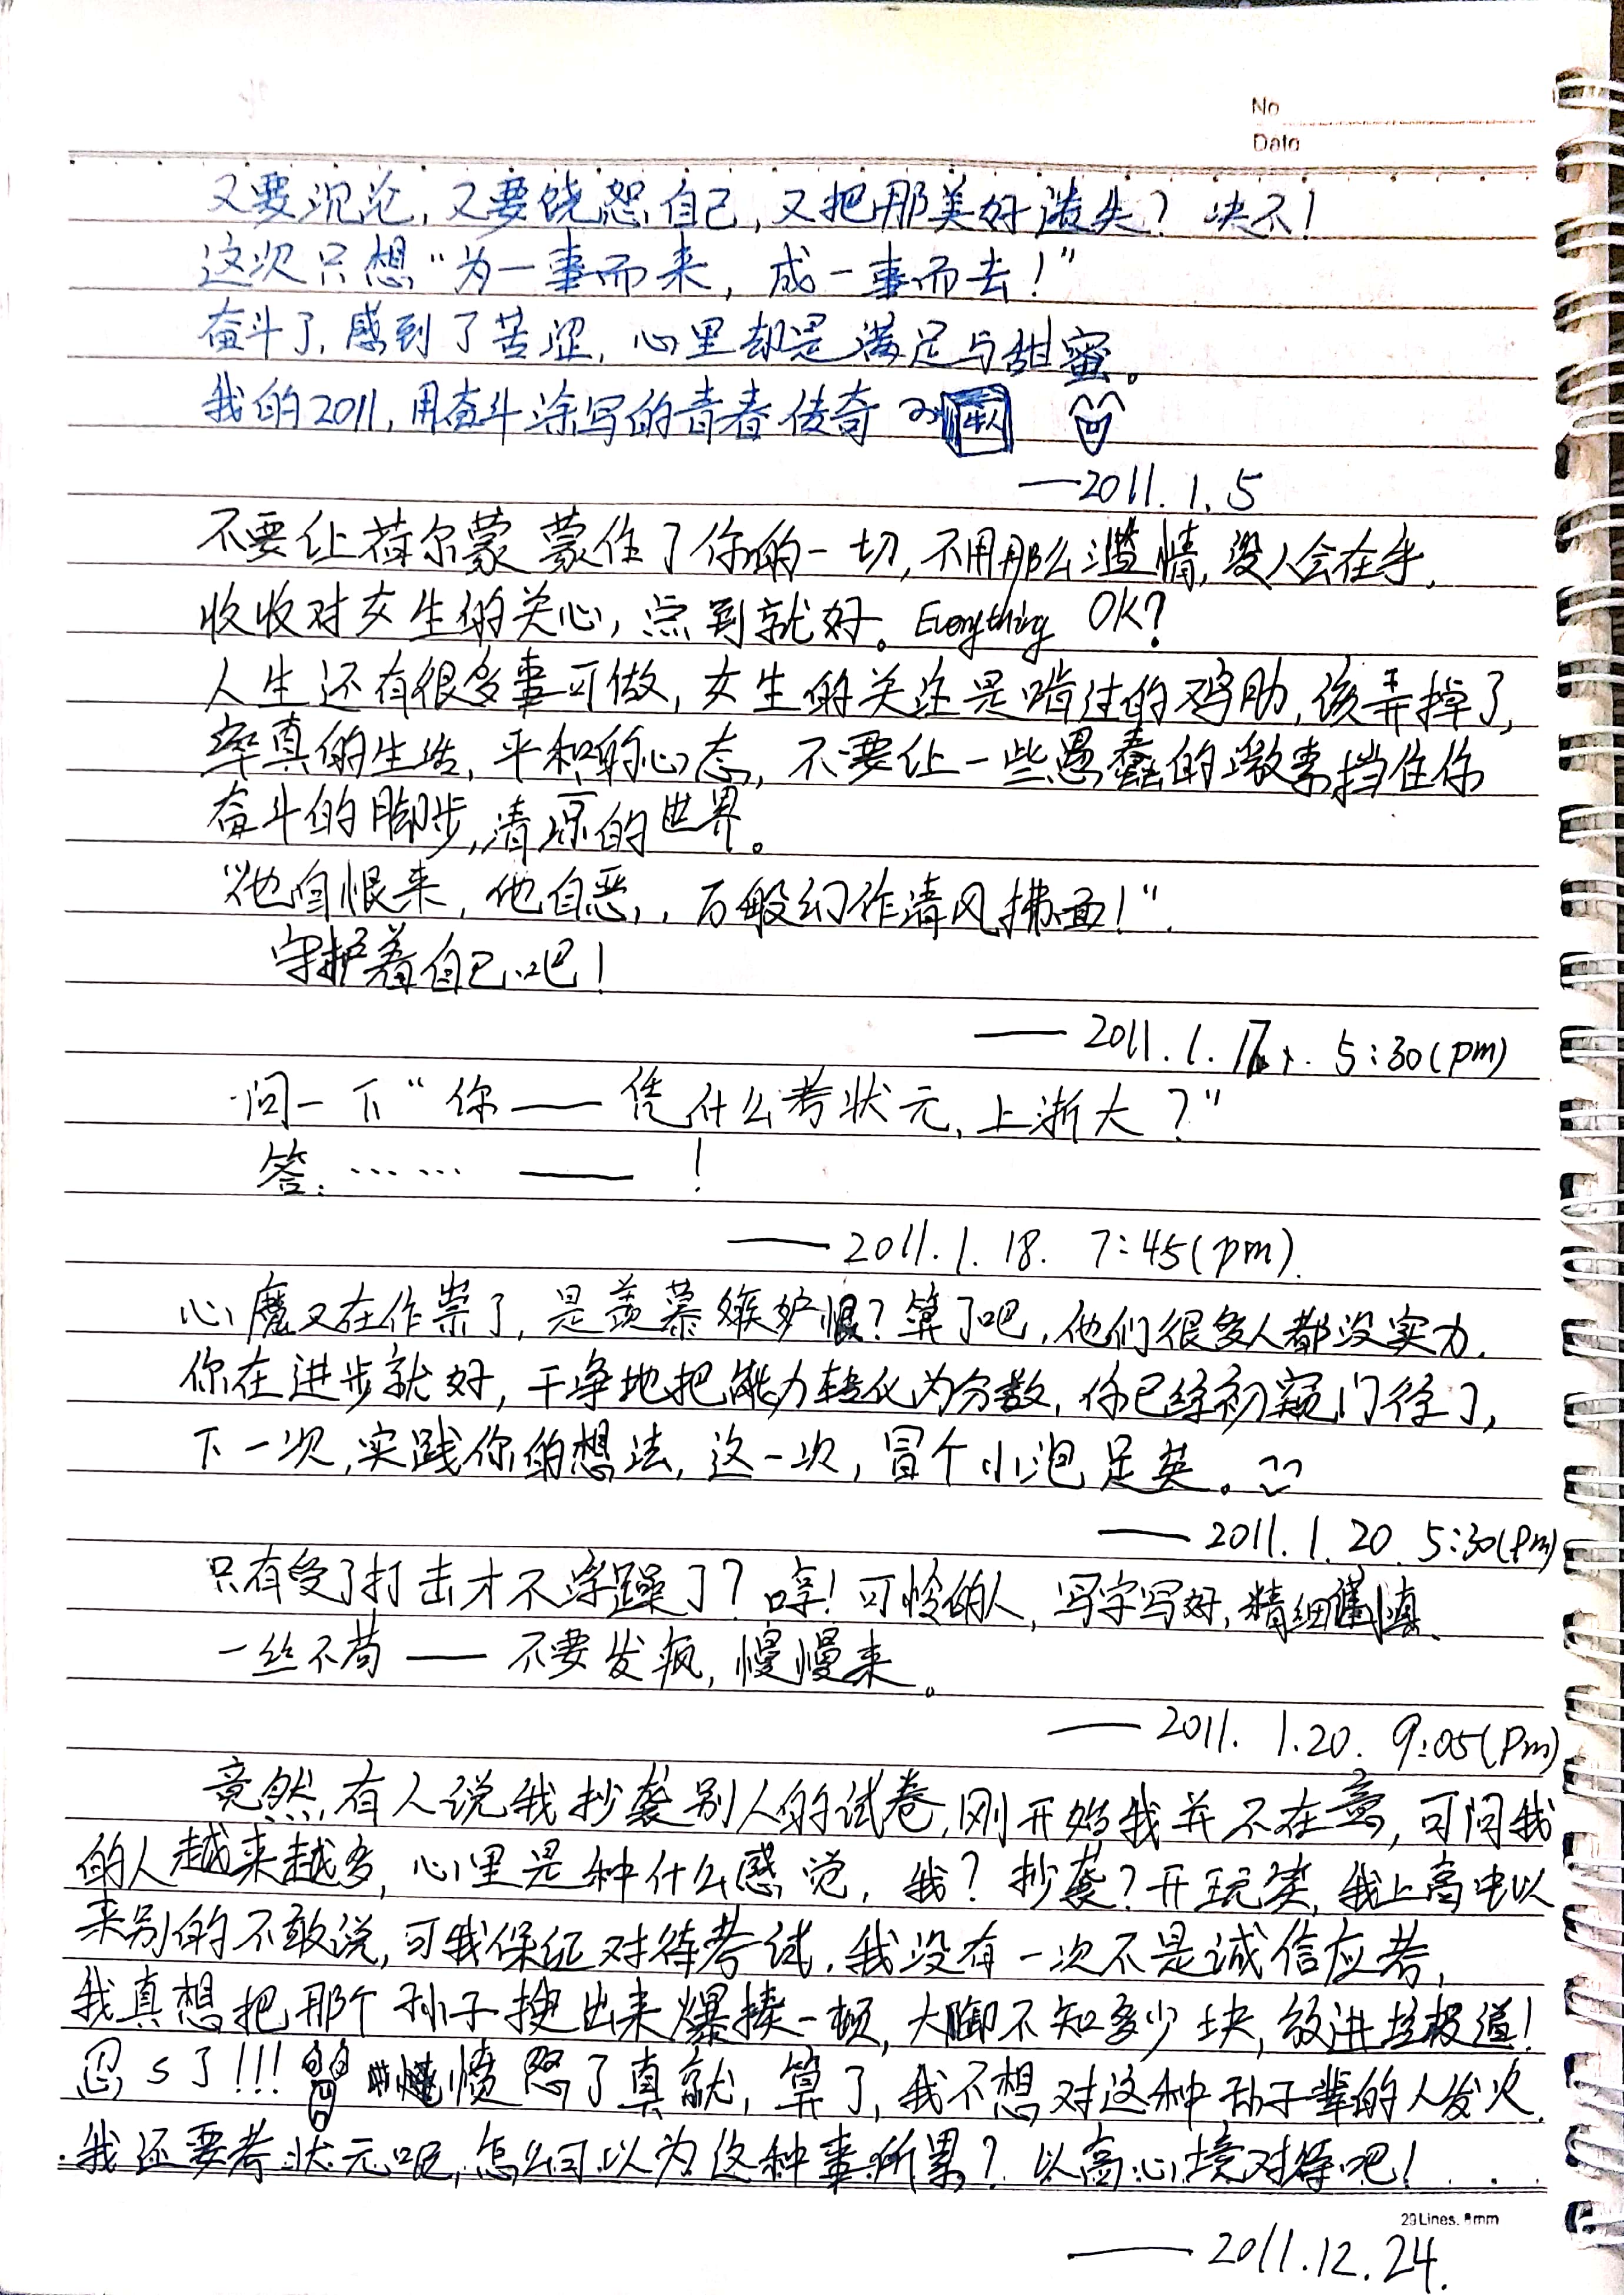 No
Date
又要沉沦，又要饶恕自己，又把那美好遗失？决不！
这次只想“为一事而来，成一事而去！”
奋斗了，感到了苦涩，心里却是满足与甜蜜。
我的2011，用奋斗涂写的青春传奇
——2011.1.5
不要让荷尔蒙蒙住了你的一切，不用那么滥情，没人会在乎，
收收对女生的关心，点到就好。Everything OK?
人生还有很多事可做，女生的关注是啃过的鸡肋，该弄掉了，
率真的生活，平和的心态，不要让一些愚蠢的激素挡住你
奋斗的脚步，清凉的世界。
“他自恨来，他自恶，，万般幻作清风拂面！”．
守护着自己吧！
——2011.1.17. 5:30(pm)
问一下“你——凭什么考状元，上浙大？”
答：…… ——！
——2011.1.18. 7:45(pm).
心魔又在作祟了，是羡慕嫉妒恨？算了吧，他们很多人都没实力，
你在进步就好，干净地把能力转化为分数，你已经初窥门径了，
下一次，实践你的想法，这一次，冒个小泡足矣。
——2011.1.20. 5:30(pm)
只有受了打击才不浮躁了？哼！可怜的人，写字写好，精细谨慎、
一丝不苟——不要发疯，慢慢来。
——2011. 1.20. 9:05(Pm)
竟然有人说我抄袭别人的试卷，刚开始我并不在意，可问我
的人越来越多，心里是种什么感觉，我？抄袭？开玩笑，我上高中以
来别的不敢说，可我保证对待考试，我没有一次不是诚信应考，
我真想把那个孙子搜出来爆揍一顿，大脚不知多少块，放进垃圾道！
忍s了!!! 愤怒了真就，算了，我不想对这种孙子辈的人发火，
我还要考状元呢，怎么可以为这种事所累？以高心境对待吧！
29Lines. 8mm
——2011.12.24.